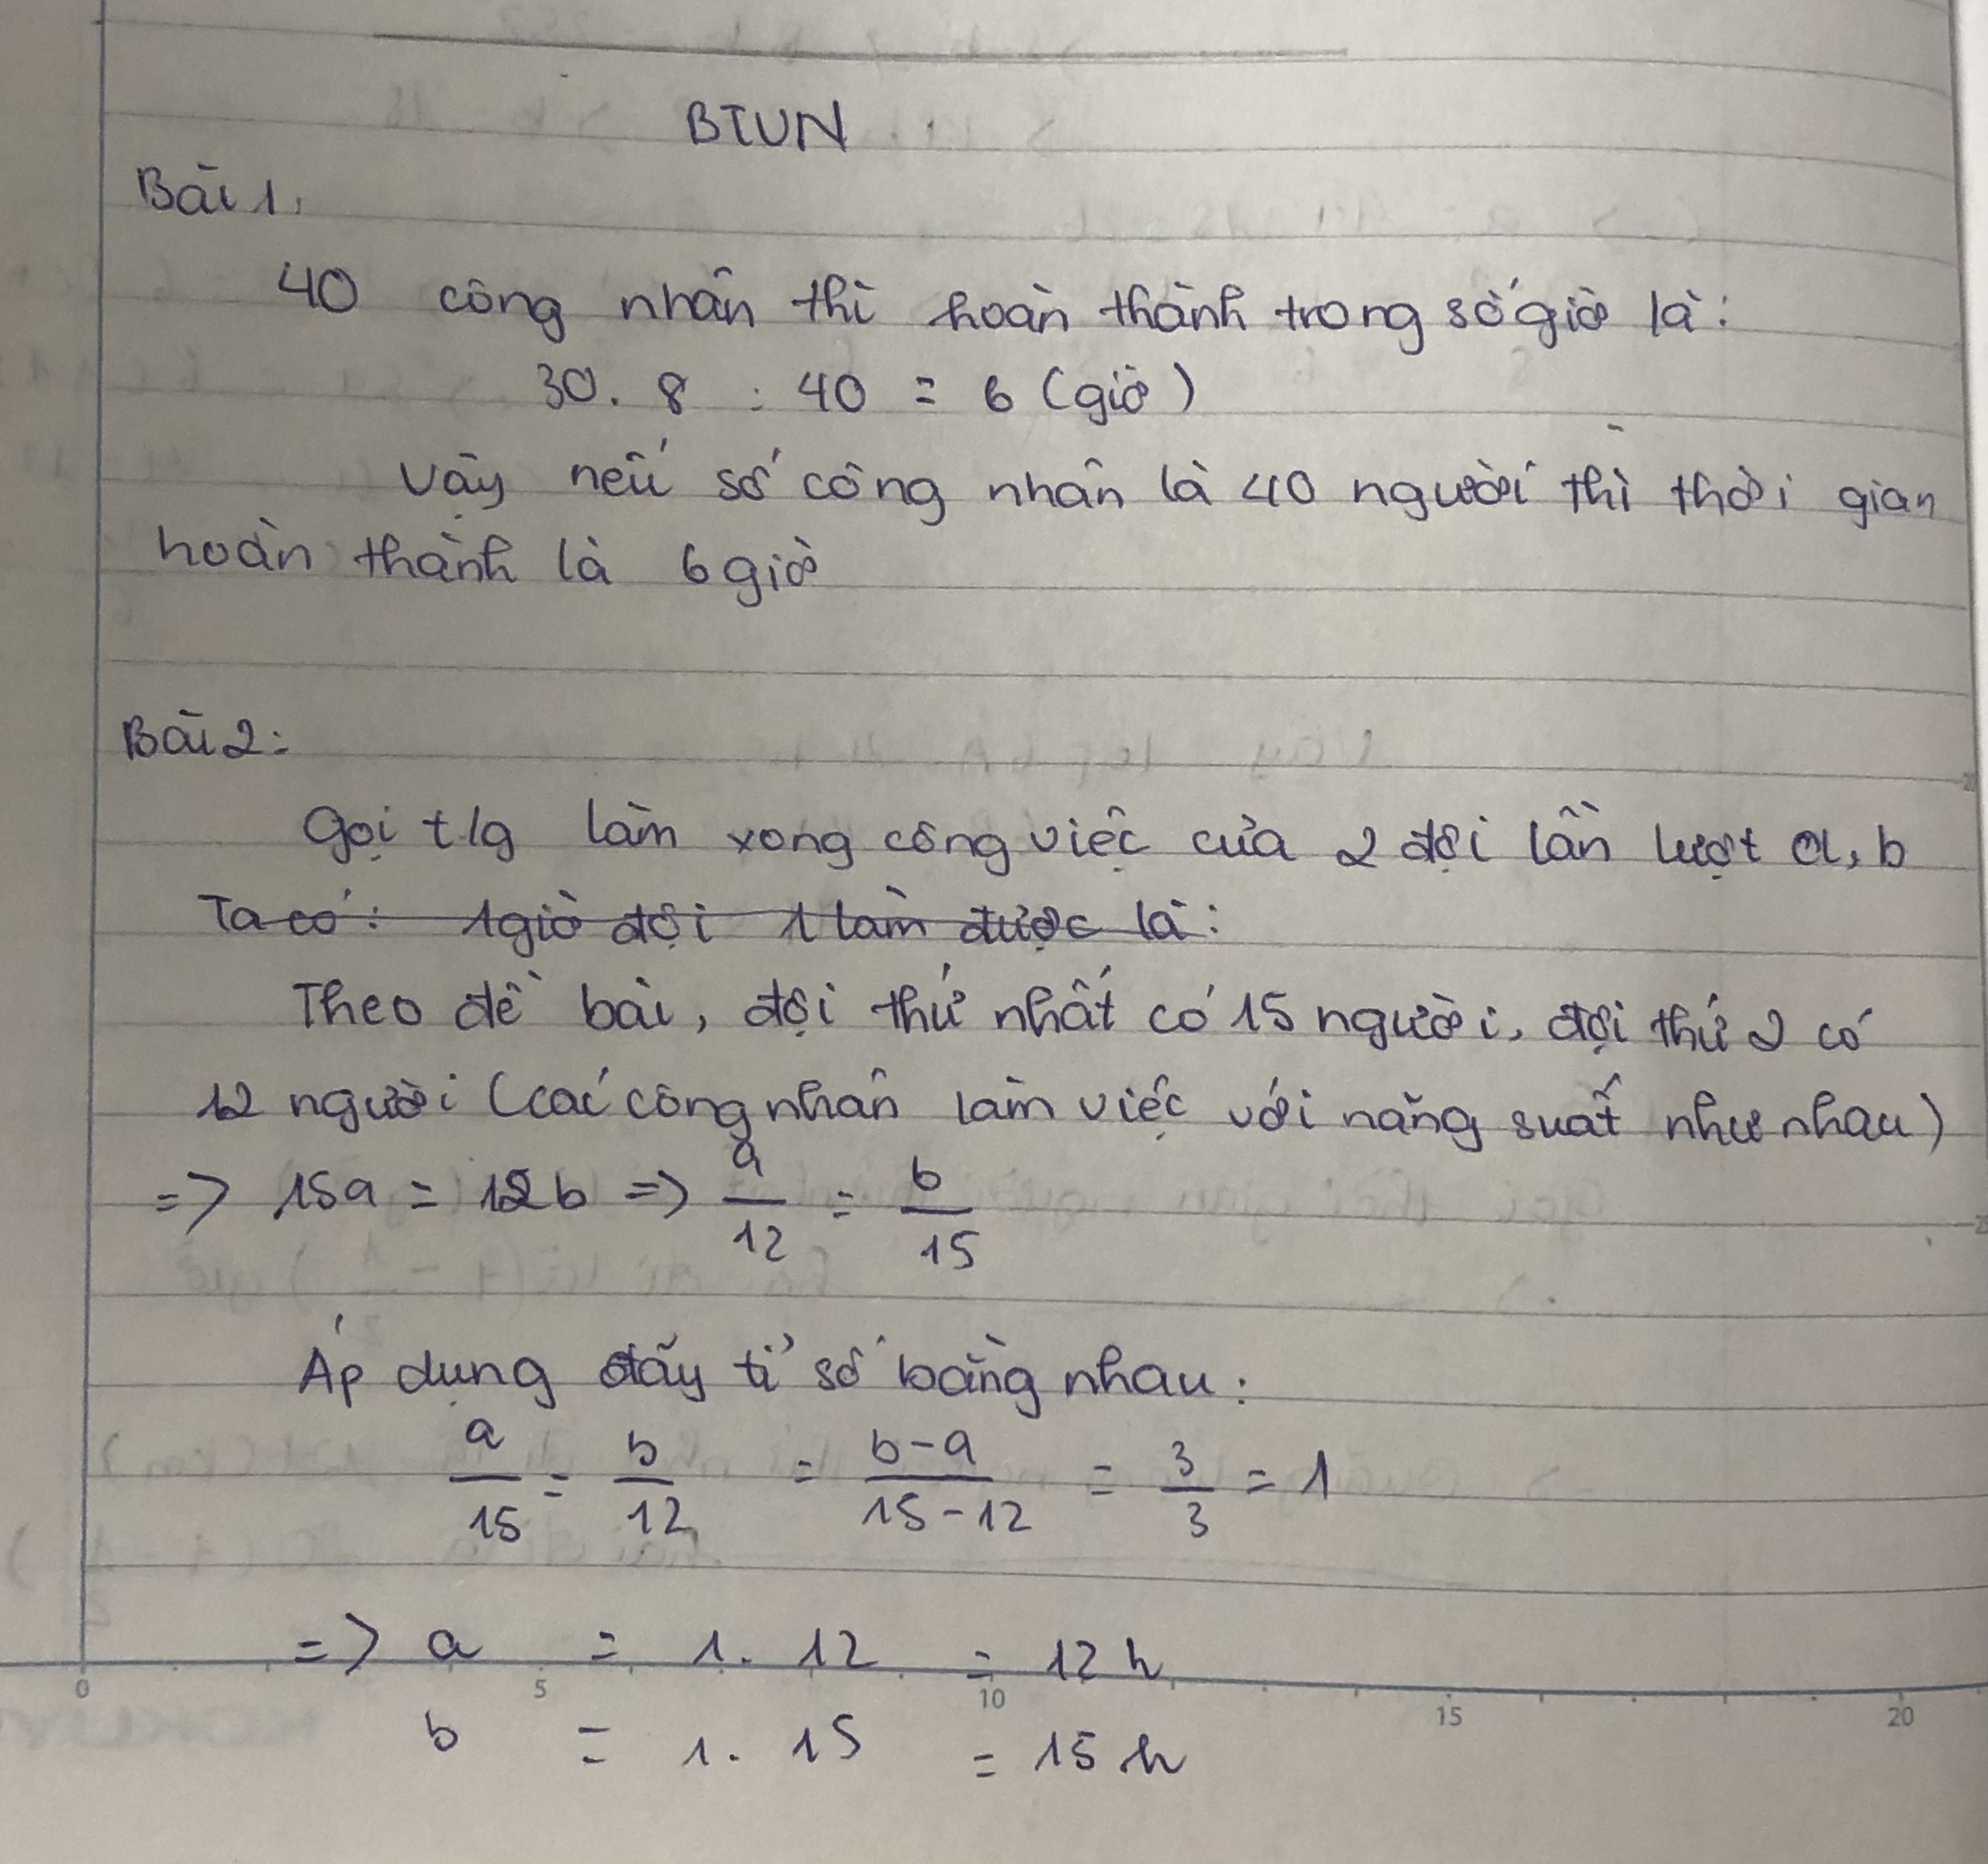 BTVN
Bài 1.
40 công nhân thì hoàn thành trong số giờ là:
30. 8 : 40 = 6 (giờ)
Vậy nếu số công nhân là 40 người thì thời gian
hoàn thành là 6 giờ
Bài 2:
Gọi t/g làm xong công việc của 2 đội lần lượt a, b
Ta có: 1 giờ đội 1 làm được là:
Theo đề bài, đội thứ nhất có 15 người, đội thứ 2 có
12 người (các công nhân làm việc với năng suất như nhau)
=> 15a = 12b => a/12 = b/15
Áp dụng dãy tỉ số bằng nhau:
a/15 = b/12 = b-a/15-12 = 3/3 = 1
=> a = 1. 12 = 12 h
b = 1. 15 = 15 h
0 5 10 15 20